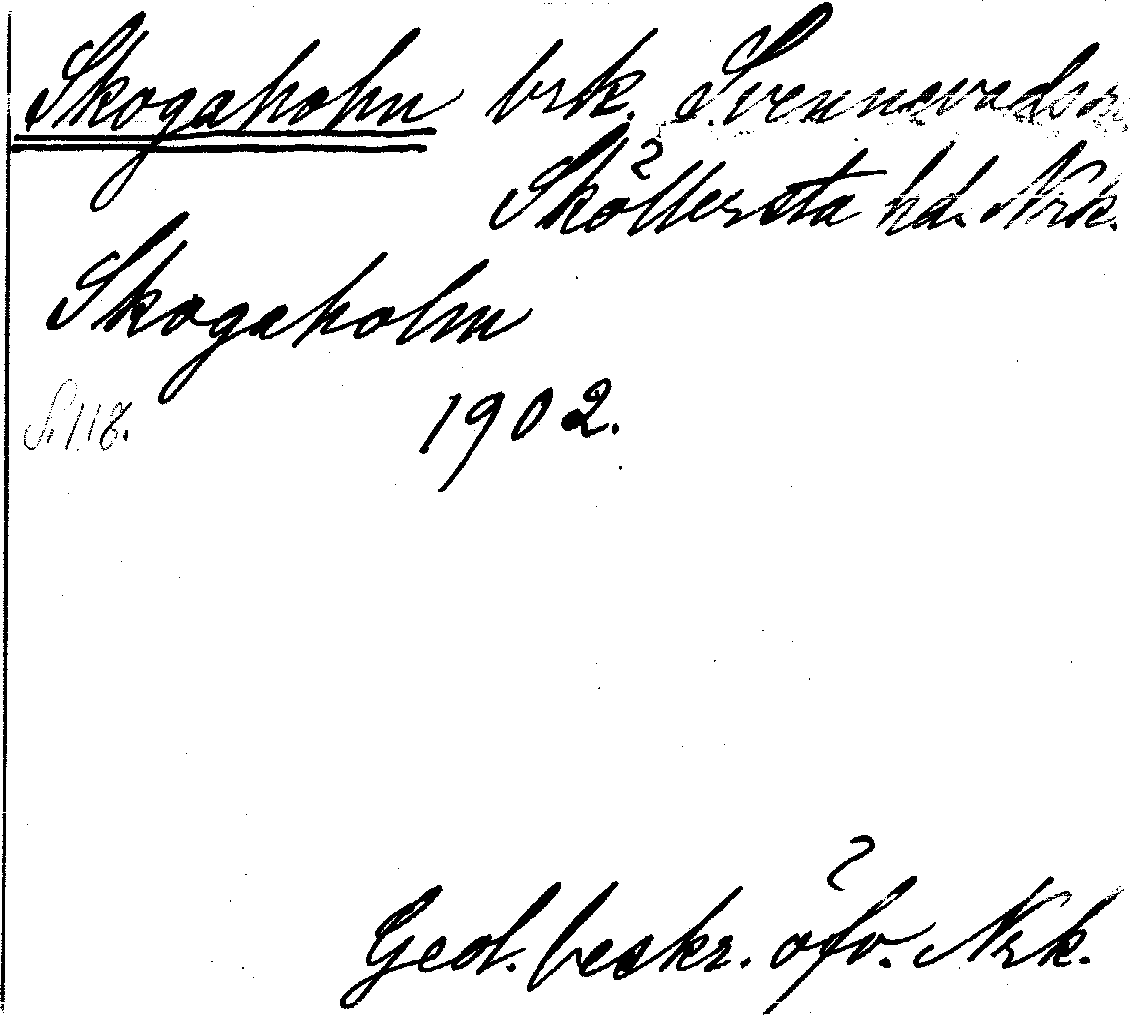 Skogaholm brk. Svennevads sn.
Sköllersta hd. Nrk.
Skogaholm
S. 118. 1902.
Geol. beskr. öfv. Nrk.